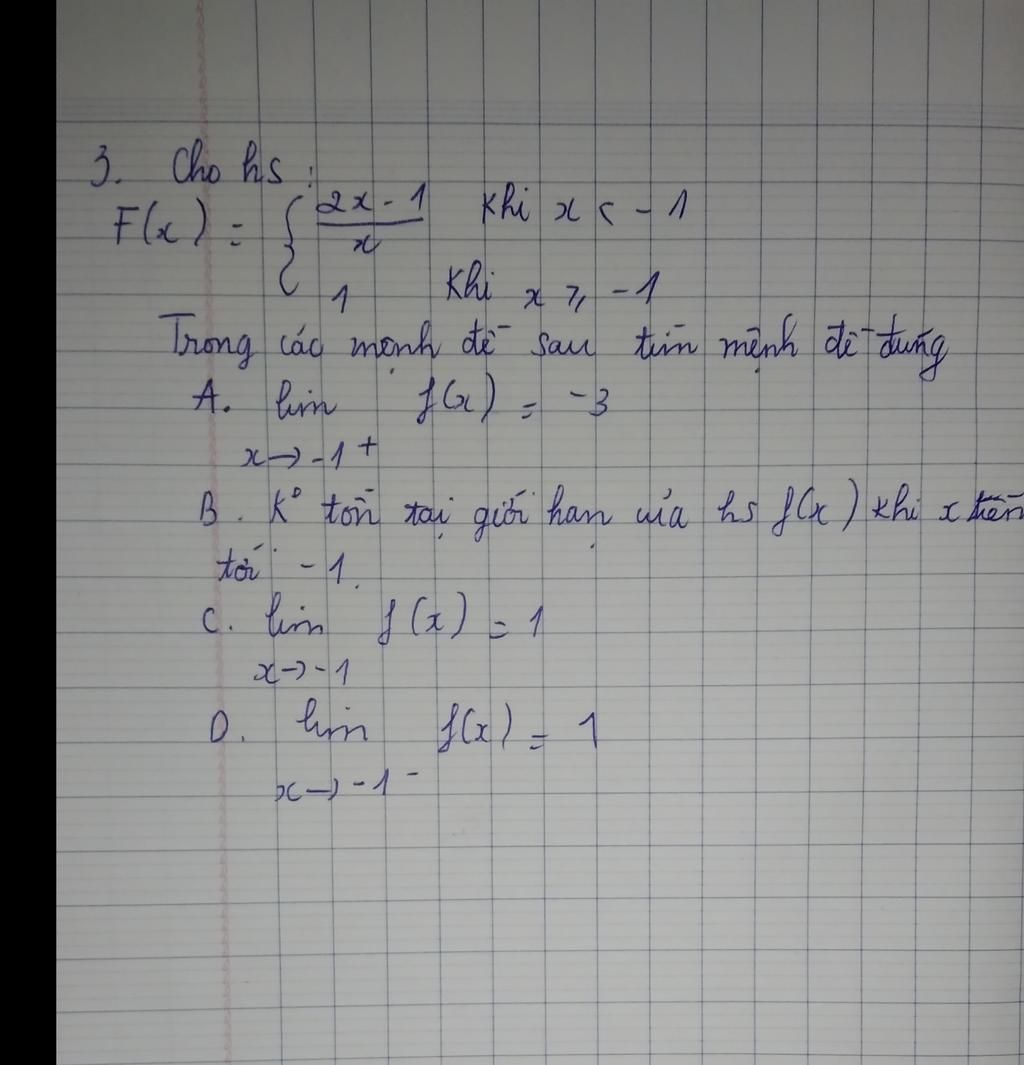 3. Cho hs :
F(x) = { 2x - 1 / x khi x < - 1
1 khi x ⩾ - 1
Trong các mệnh đề sau tìm mệnh đề đúng
A. lim f(x) = -3
x → -1 +
B. K° tồn tại giới hạn của hs f(x) khi x tiến
tới - 1.
C. lim f(x) = 1
x → - 1
D. lim f(x) = 1
x → - 1 -